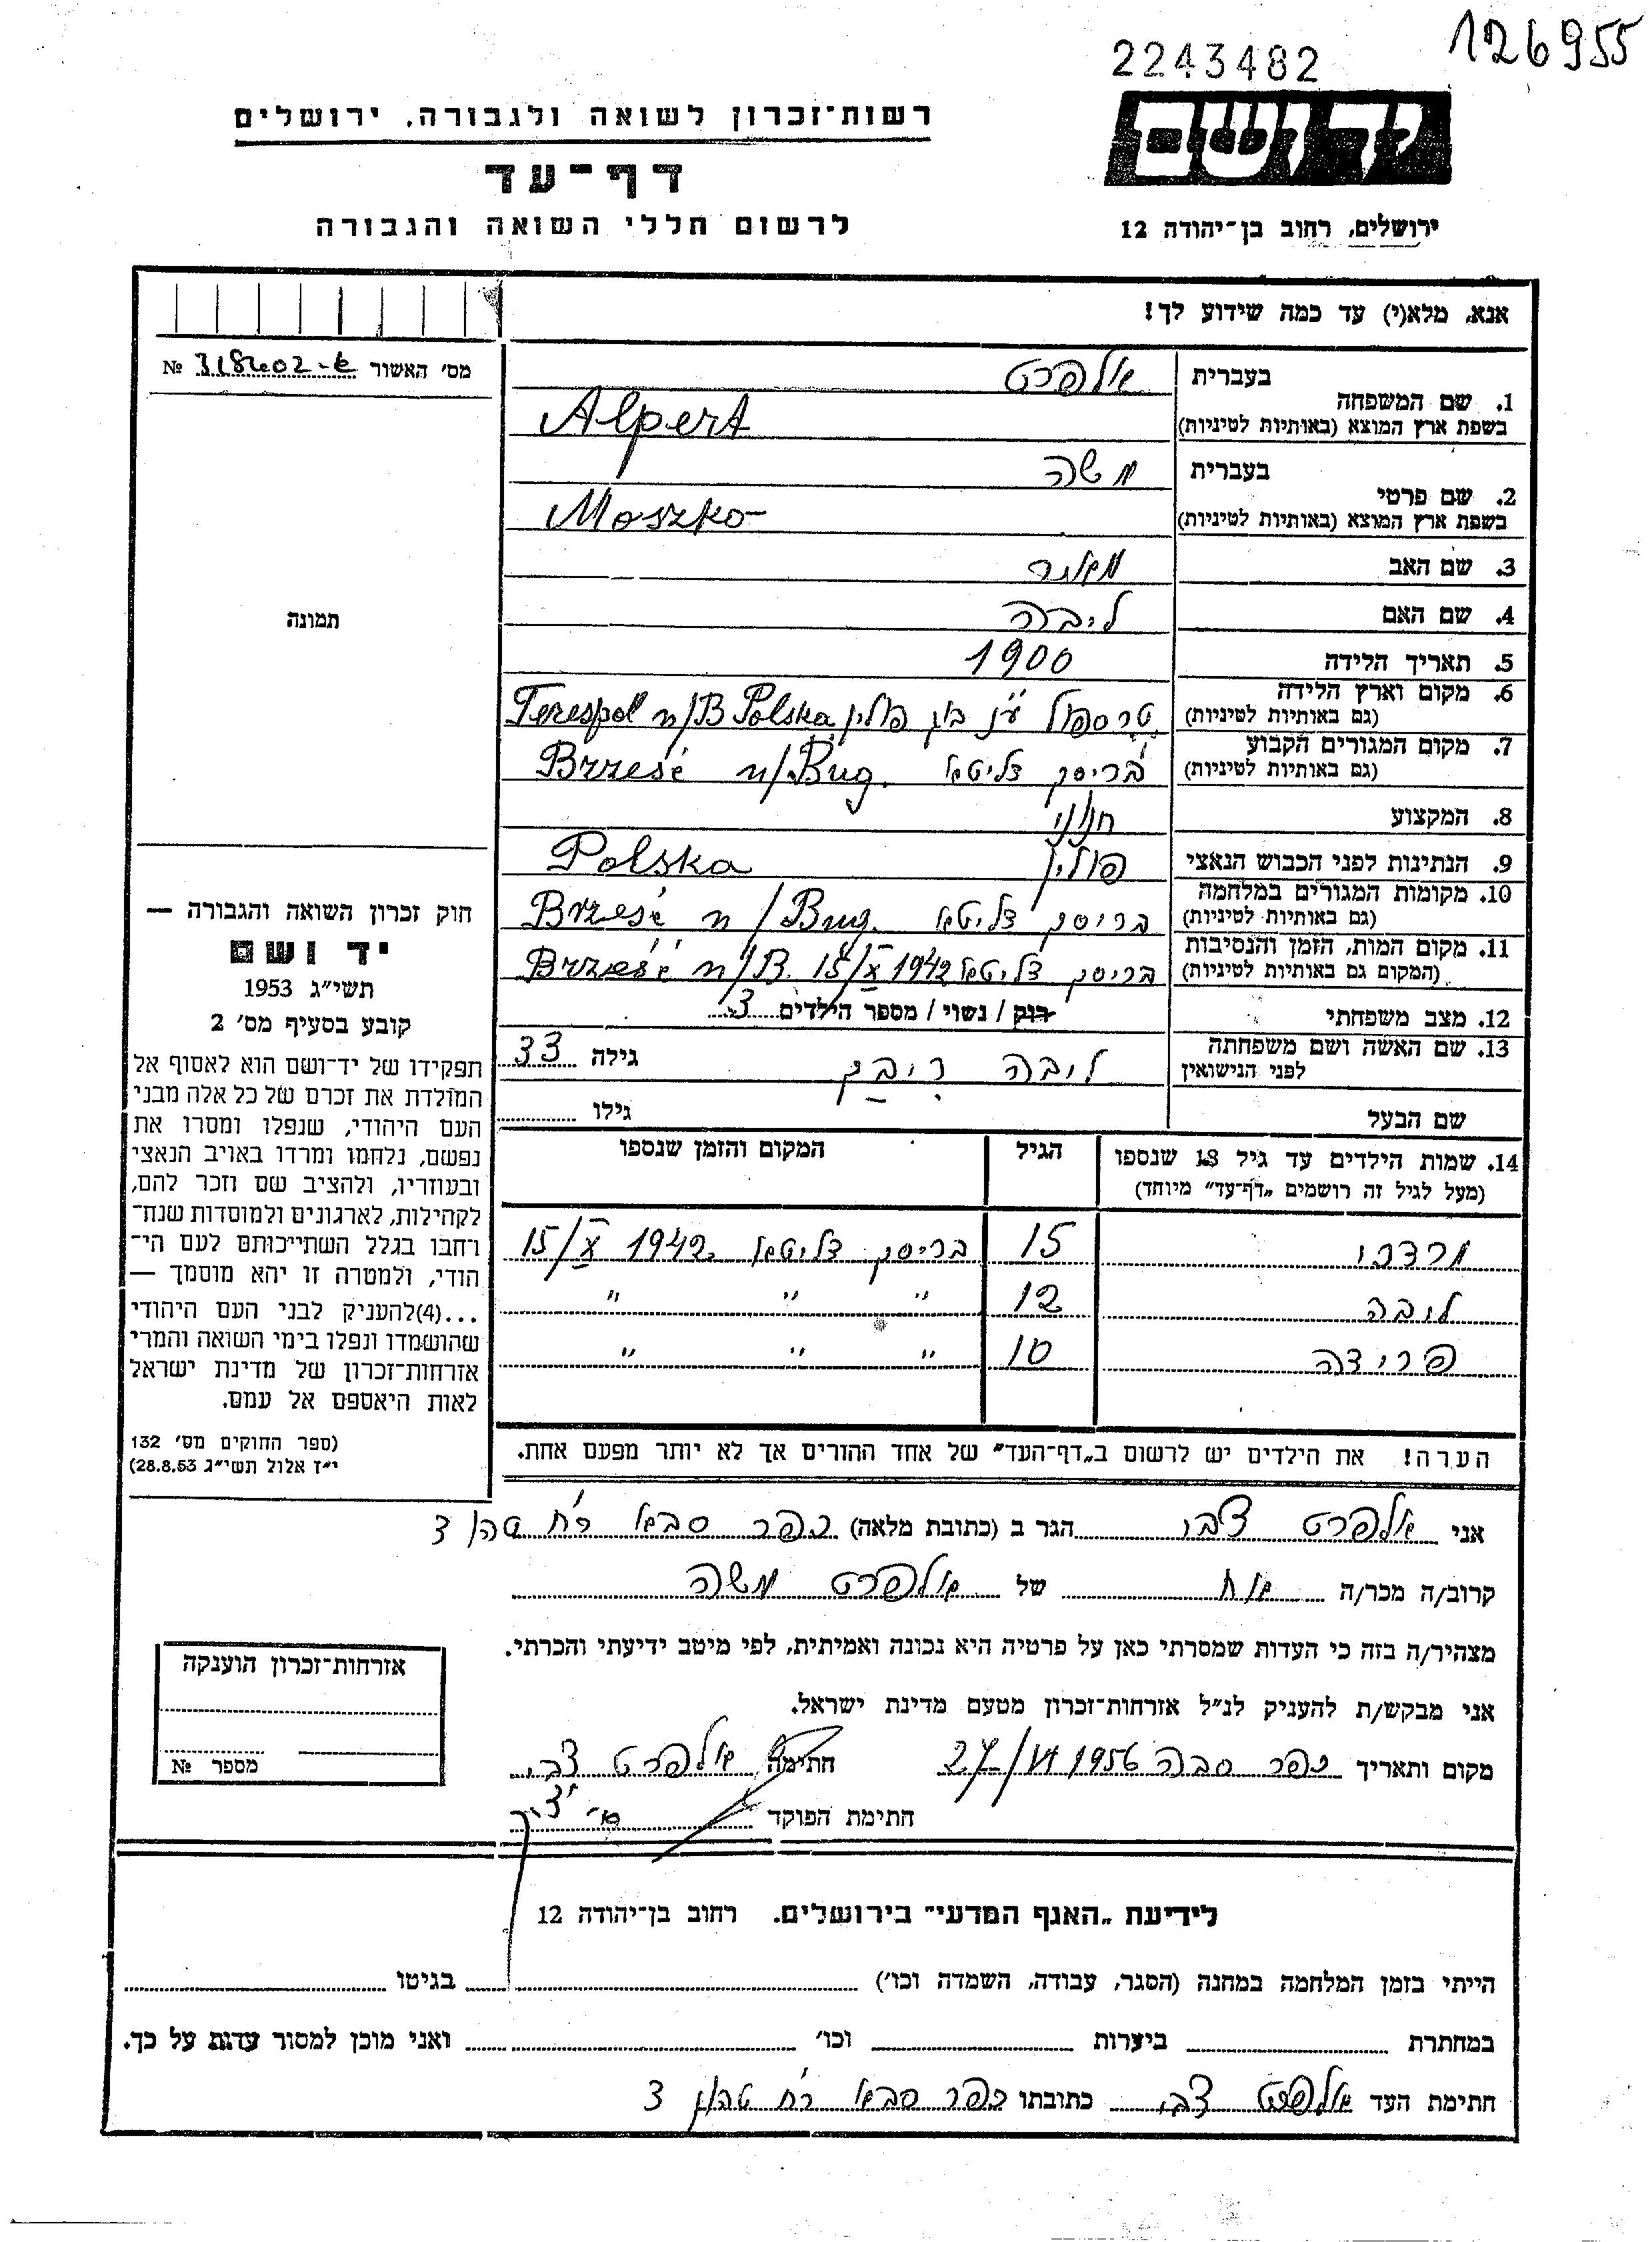 126955
2243482
יד ושם
רשות־זכרון לשואה ולגבורה, ירושלים
דף־עד
לרשום חללי השואה והגבורה
ירושלים, רחוב בן־יהודה 12
אנא, מלא(י) עד כמה שידוע לך!
מס׳ האשור №
בעברית אלפרט
1. שם המשפחה
בשפת ארץ המוצא (באותיות לטיניות) Alpert
בעברית משה
2. שם פרטי
בשפת ארץ המוצא (באותיות לטיניות) Moszko
3. שם האב
4. שם האם ליבה
5. תאריך הלידה 1900
6. מקום וארץ הלידה
(גם באותיות לטיניות) טרספול ע״נ בוג פולין Terespol n/B Polska
7. מקום המגורים הקבוע
(גם באותיות לטיניות) בריסק דליטא Brześć n/Bug.
8. המקצוע חנוני
9. הנתינות לפני הכבוש הנאצי פולין Polska
10. מקומות המגורים במלחמה
(גם באותיות לטיניות) בריסק דליטא Brześć n/Bug.
11. מקום המות, הזמן והנסיבות
(המקום גם באותיות לטיניות) בריסק דליטא 15/X 1942 Brześć n/B.
12. מצב משפחתי רוק / נשוי / מספר הילדים 3
13. שם האשה ושם משפחתה
לפני הנישואין ליבה גילה 33
שם הבעל גילו
14. שמות הילדים עד גיל 18 שנספו
(מעל לגיל זה רושמים „דף־עד״ מיוחד)
הגיל
המקום והזמן שנספו
מרדכי 15 בריסק דליטא 1942 15/X
לובה 12 " " "
פרידה 10 " " "
הערה! את הילדים יש לרשום ב„דף־העד״ של אחד ההורים אך לא יותר מפעם אחת.
תמונה
חוק זכרון השואה והגבורה —
יד ושם
תשי״ג 1953
קובע בסעיף מס׳ 2
תפקידו של יד־ושם הוא לאסוף אל
המולדת את זכרם של כל אלה מבני
העם היהודי, שנפלו ומסרו את
נפשם, נלחמו ומרדו באויב הנאצי
ובעוזריו, ולהציב שם וזכר להם,
לקהילות, לארגונים ולמוסדות שנח־
רחבו בגלל השתייכותם לעם הי־
הודי, ולמטרה זו יהא מוסמך —
...(4)להעניק לבני העם היהודי
שהושמדו ונפלו בימי השואה והמרי
אזרחות־זכרון של מדינת ישראל
לאות היאספם אל עמם.
(ספר החוקים מס׳ 132
י״ז אלול תשי״ג 28.8.53)
אני אלפרט צבי הגר ב (כתובת מלאה) כפר סבא רח׳ 3
קרוב/ה מכר/ה אח של אלפרט משה
מצהיר/ה בזה כי העדות שמסרתי כאן על פרטיה היא נכונה ואמיתית, לפי מיטב ידיעתי והכרתי.
אני מבקש/ת להעניק לנ״ל אזרחות־זכרון מטעם מדינת ישראל.
מקום ותאריך כפר סבה 27/VI 1956 חתימה אלפרט צבי
חתימת הפוקד
אזרחות־זכרון הוענקה
מספר №
לידיעת „האגף המדעי״ בירושלים. רחוב בן־יהודה 12
הייתי בזמן המלחמה במחנה (הסגר, עבודה, השמדה וכו׳) בגיטו
במחתרת ביערות וכו׳ ואני מוכן למסור עדות על כך.
חתימת העד אלפרט צבי כתובתו כפר סבא רח׳ 3